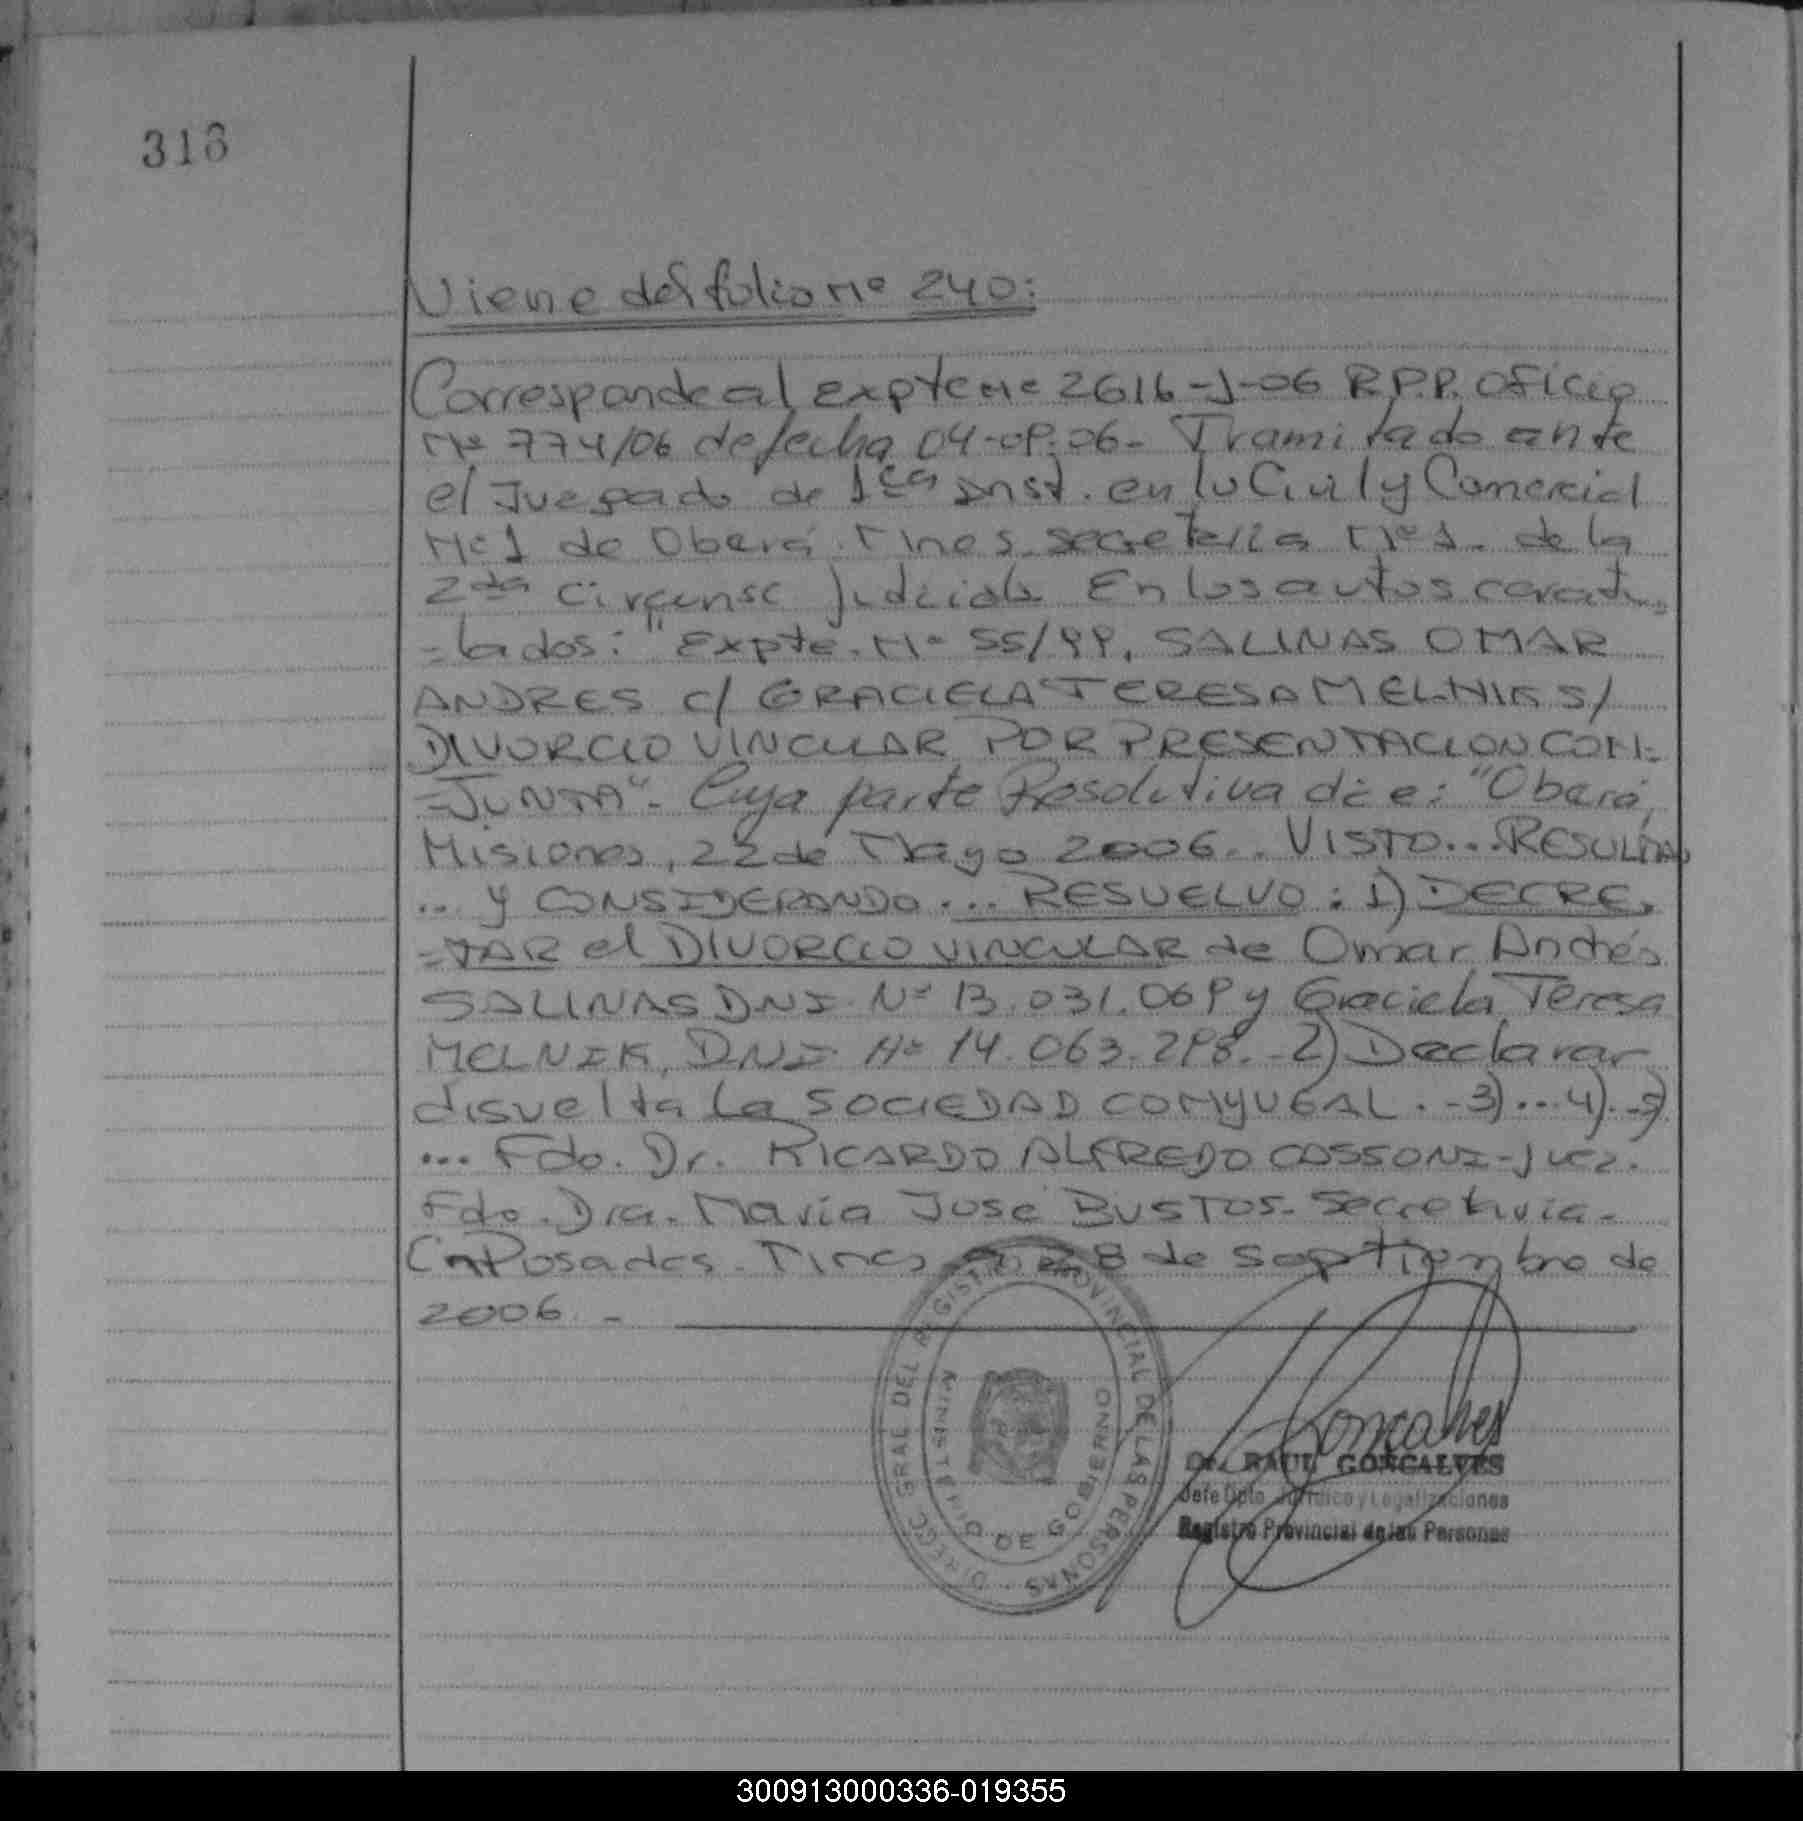 318
Viene del folio Nº 240:
Corresponde al expte Nº 2616-J-06 R.P.P. Oficio
Nº 774/06 de fecha 04-09-06- Tramitado ante
el Juzgado de 1ra Inst. en lo Civil y Comercial
Nº 1 de Oberá. Mnes. secretaria Nº 1. de la
2da Circunsc Judicial. En los autos caratu=
=lados: "Expte. Nº 55/99, SALINAS OMAR
ANDRES c/ GRACIELA TERESA MELNIK S/
DIVORCIO VINCULAR POR PRESENTACION CON=
=JUNTA"- Cuya parte Resolutiva dice: "Oberá,
Misiones, 22 de Mayo 2006.. VISTO...RESULTA,
... y CONSIDERANDO... RESUELVO: 1) DECRE=
=TAR el DIVORCIO VINCULAR de Omar Andrés
SALINAS DNI Nº 13.031.069 y Graciela Teresa
MELNIK, DNI Nº 14.063.298.-2) Declarar
disuelta la SOCIEDAD CONYUGAL.-3)...4)..5)
... Fdo. Dr. RICARDO ALFREDO CASSONI-Juez.
Fdo. Dra. María José BUSTOS- Secretaria-
En Posadas. Mnes a 28 de Septiembre de
2006.-
DIRECC. GRAL DEL REGISTRO PROVINCIAL DE LAS PERSONAS
MINISTERIO DE GOBIERNO
Goncalves
Dr. RAUL GONCALVES
Jefe Dpto. Jurídico y Legalizaciones
Registro Provincial de las Personas
300913000336-019355